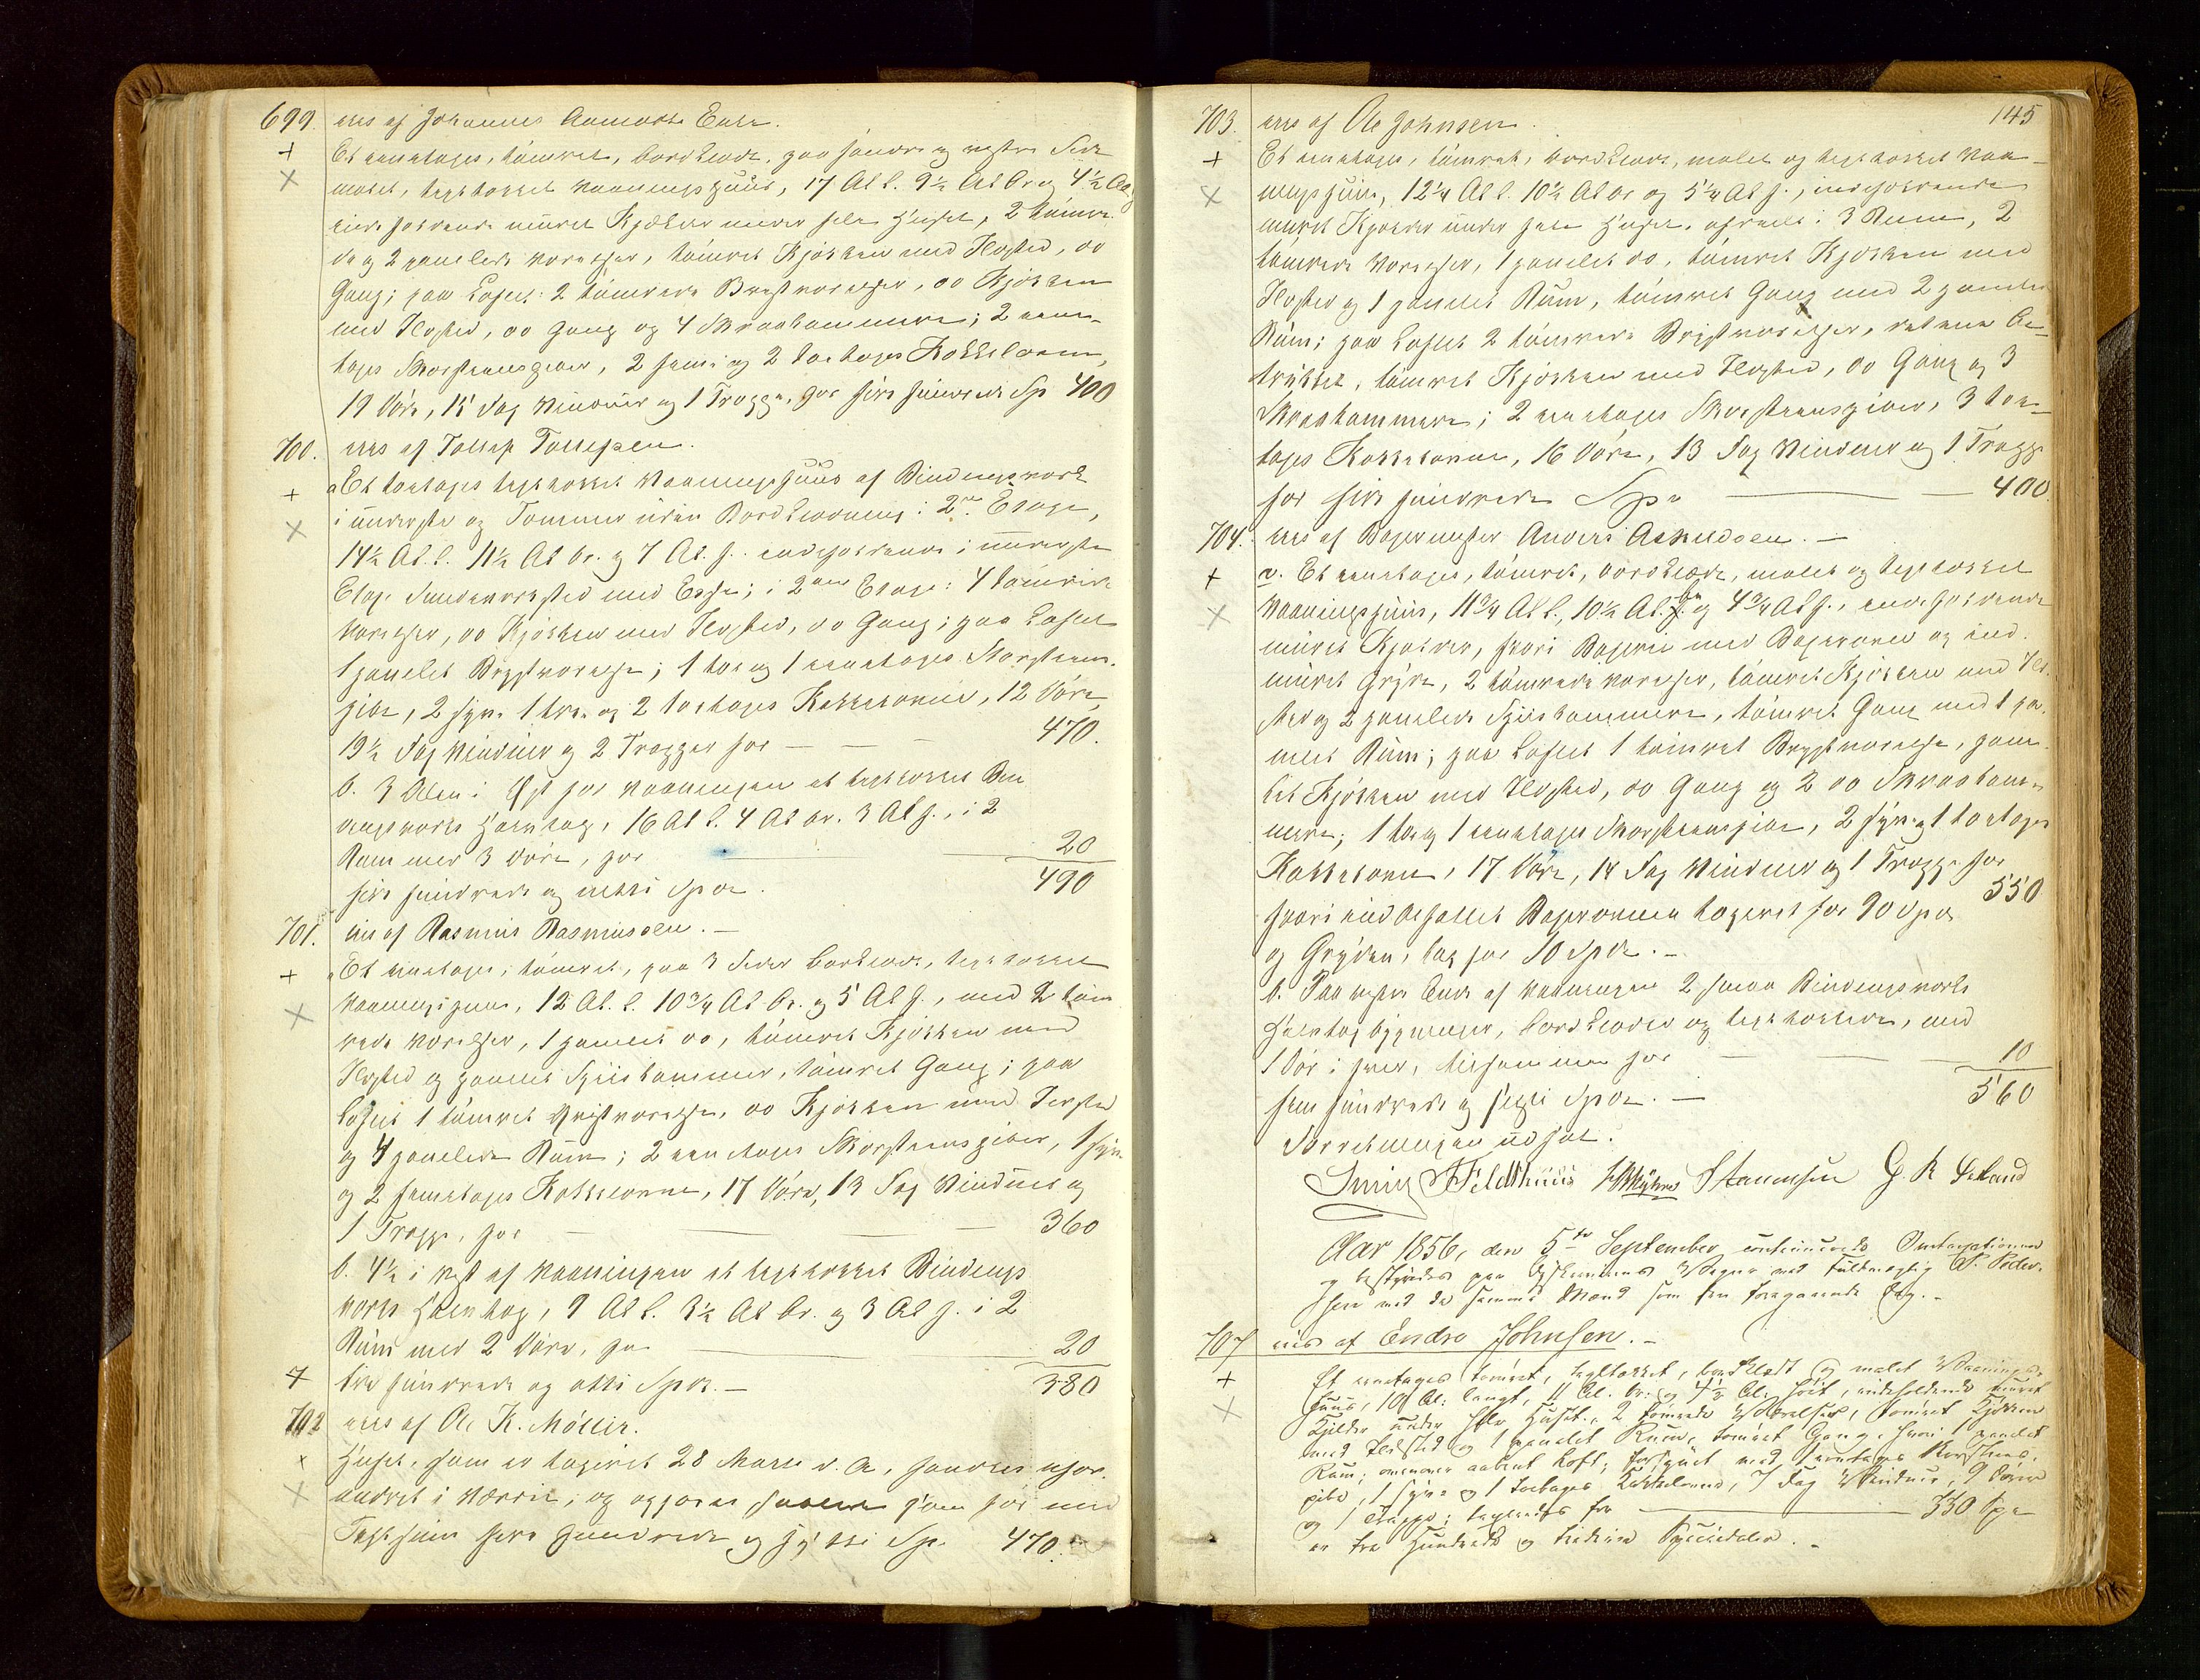 699. eies af Johannes Aamodts Enke.
+ Et eenetages, tømret, bordklædt, paa søndre og vestre Side
× malet, teglhokket Vaaningshuus, 17 Al l. 9½ Al br. og 4½ Al h.
indeholdende muret Kjælder under hele Huset, 2 tømre-
de og 2 panelede Værelser, tømret Kjøkken med Ildsted, do
Gang; paa Loftet: 2 tømrede Brystværelser, do Kjøkken
med Ildsted, do Gang og 4 Skraakammere; 2 eene-
tages Skorsteenspiber, 2 fem- og 2 toetages Kakkelovne,
19 Døre, 15 Fag Vinduer og 1 Trappe, for fire hundrede Sp 400
700. eies af Tollef Tollefsen.
+ a Et toetages teglhokket Vaaningshuus af Bindingsværk
× i underste og Tømmer uden Bordklædning i 2den Etage,
14½ Al. l. 11½ Al br. og 7 Al. h. indeholdende i underste
Etage Smedeværksted med Esse; i 2den Etage: 4 tømrede
Værelser, do Kjøkken med Ildsted, do Gang; paa Loftet
1 panelet Brystværelse; 1 toe og 1 eenetages Skorsteens-
pibe, 2 og 2 toetages Kakkelovne, 12 Døre,
19½ Fag Vinduer og 2 Trapper for — — — 470.
b. 3 Alen i Øst for Vaaningen et teglhokket Bin
dingsværks Halvtag, 16 Al l. 4 Al br. 3 Al h., i 2
Rum med 3 Døre, for — 20
fire hundrede og nitti Spd. 490
701. eies af Rasmus Rasmussen. —
+ a Et eenetages, tømret, paa 3 Sider bordklædt, teglhokket
× Vaaningshuus, 12 Al. l. 10¾ Al br. og 5 Al h., med 2 tøm
rede Værelser, 1 panelet do, tømret Kjøkken med
Ildsted og panelet Spiiskammer, tømret Gang; paa
Loftet 1 tømret Brystværelse, do Kjøkken med Ildsted
og 4 panelede Rum; 2 eenetages Skorsteenspiber, 1
og 2 Kakkelovne, 17 Døre, 13 Fag Vinduer og
1 Trappe, for — — — 360
b. 4½ i Vest af Vaaningen et teglhokket Bindings
værks Halvtag, 9 Al l. 3½ Al br. og 3 Al h. i 2
Rum med 2 Døre, for — 20
+ tre hundrede og otti Spd. — 380
702 eies af Ole K. Møller.
× Huset, som er taxeret 28 Marts d. A., fandtes ufor-
× andret i Værdie, og opføres saavel som før med
fire hundrede og sytti Sp. 470.
145
703. eies af Ole Johnsen.
+ Et eenetages, tømret, bordklædt, malet og teglhokket Vaa-
× ningshuus, 12¼ Al l. 10½ Al br og 5¼ Al h., indeholdende
muret Kjælder under hele Huset, afdeelt i 3 Rum, 2
tømrede Værelser, 1 panelet do, tømret Kjøkken med
Ildsted og 1 panelet Rum, tømret Gang med 2 panelede
Rum; paa Loftet 2 tømrede Brystværelser,
tømret Kjøkken med Ildsted, do Gang og 3
Skraakammere; 2 eenetages Skorsteenspiber, 3 toe-
tages Kakkelovne, 16 Døre, 13 Fag Vinduer og 1 Trappe
for fire hundrede Spd — — 400.
704. eies af Bagermester Anders —
+ a. Et eenetages, tømret, bordklædt, malet og teglhokket
× Vaaningshuus, 11¾ Al l., 10½ Al. br og 4¾ Al h., indeholdende
muret Kjælder, hvori Bagerie med Bagerovn og ind-
muret Gryde, 2 tømrede Værelser, tømret Kjøkken med Ild-
sted og 2 panelede Spiiskammere, tømret Gang med 1 pa-
nelet Rum; paa Loftet 1 tømret Brystværelse, pane-
let Kjøkken med Ildsted, do Gang og 2 do Skraakam-
mere; 1 toe og 1 eenetages Skorsteenspibe, 2 og 1 toetages
Kakkelovn, 17 Døre, 14 Fag Vinduer og 1 Trappe for 550
hvori indbefattet Bagerovnen taxeret for 90 Spd.
og Gryden, tax for 10 Spd. —
b. Paa vestre Ende af Vaaningen 2 smaa Bindingsværks
Halvtagbygninger, bordklædte og teglhokkede, med
1 Dør i hver, tilsammen for — — 10
fem hundrede og sexti Spd. — 560
Forretningen udsat.
Smith Feldthuus Stammesen G. R. Seland
Aar 1856, den 5te September continuerede Omtaxtionen
og bestyredes paa Lyskanens Vegne ved Fuldmægtig P. Peder-
sen med de samme Mænd som den foregaaende Dag. —
707 eies af Endre Johnsen. —
+ Et eenetages tømret, teglhokket, bordklædt og malet Vaanings-
× huus, 10 Al. langt, 11 Al. br. og 4½ Al. høit, indeholdende muret
Kjelder under hele Huset, 2 tømrede Værelser, tømret Kjøkken
med Ildsted og 1 panelet Rum, tømret Gang, hvori 1 panelet
Rum; ovenover aabent Loft; forsynet med 1 eenetages Skorsteens-
pibe, 1 og 1 toetages Kakkelovn, 7 Fag Vinduer, 9 Døre
og 1 Trappe; for — 330 Spd
er tre Hundrede og tredive Speciedaler. —